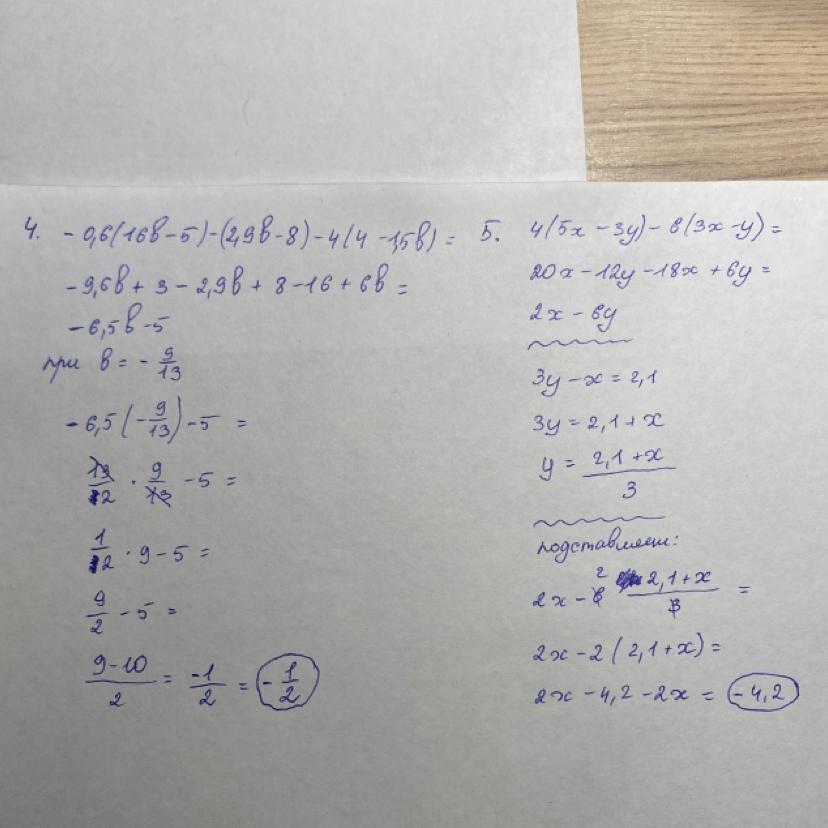 4. - 0,6(16в - 5) - (2,9в - 8) - 4(4 - 1,5в) =
-9,6в + 3 - 2,9в + 8 - 16 + 6в =
-6,5в - 5
при в = - 9/13
-6,5(-9/13) - 5 =
13/2 · 9/13 - 5 =
1/2 · 9 - 5 =
9/2 - 5 =
(9-10)/2 = -1/2 = -1/2
5. 4(5x - 3y) - 6(3x - y) =
20x - 12y - 18x + 6y =
2x - 6y
3y - x = 2,1
3y = 2,1 + x
y = (2,1 + x)/3
подставляем:
2x - 6² (2,1 + x)/3 =
2x - 2(2,1 + x) =
2x - 4,2 - 2x = -4,2